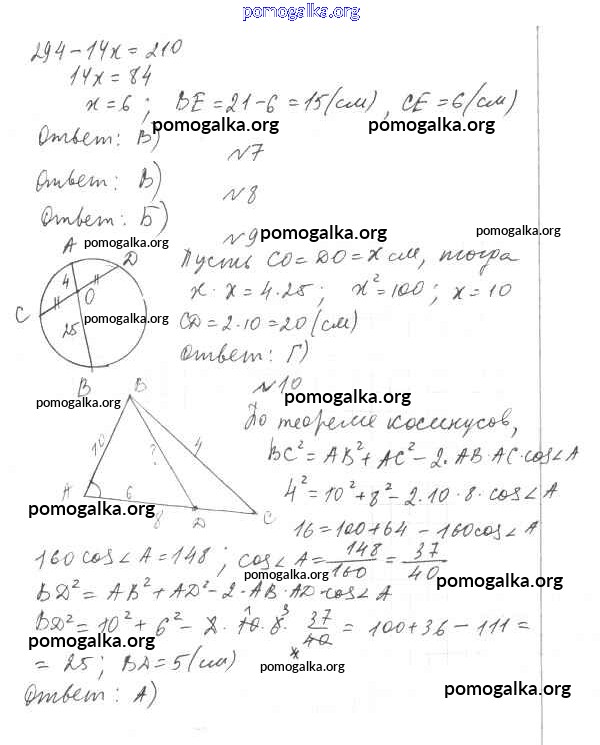 pomogalka.org
294 - 14x = 210
14x = 84
x = 6 ; BE = 21 - 6 = 15 (см), CE = 6 (см)
Ответ: В) pomogalka.org pomogalka.org
№7
Ответ: В)
№8
Ответ: Б)
№9 pomogalka.org pomogalka.org
A pomogalka.org D Пусть CO = DO = x см, тогда
4 O x · x = 4 · 25 ; x² = 100 ; x = 10
C 25 pomogalka.org CD = 2 · 10 = 20 (см)
Ответ: Г)
B
№10
pomogalka.org B pomogalka.org
По теореме косинусов,
10 ? 4 BC² = AB² + AC² - 2 · AB · AC · cos∠A
A 6 4² = 10² + 8² - 2 · 10 · 8 · cos∠A
pomogalka.org 8 D C 16 = 100 + 64 - 160 cos∠A
160 cos∠A = 148 ; cos∠A = 148/160 = 37/40
pomogalka.org pomogalka.org
BD² = AB² + AD² - 2 · AB · AD · cos∠A
BD² = 10² + 6² - 2 · 10 · 6 · 37/40 = 100 + 36 - 111 =
pomogalka.org
= 25 ; BD = 5 (см) pomogalka.org
Ответ: А) pomogalka.org